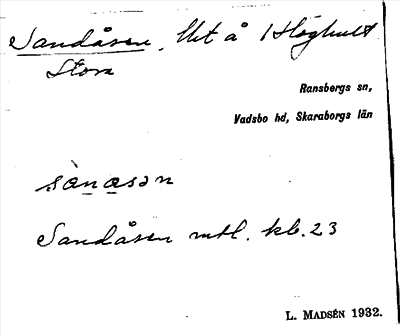 Sandåsen, Ut å 1 Höghult
Stora
Ransbergs sn,
Vadsbo hd, Skaraborgs län
sànasən
Sandåsen mtl. kb. 23
L. MADSÉN 1932.